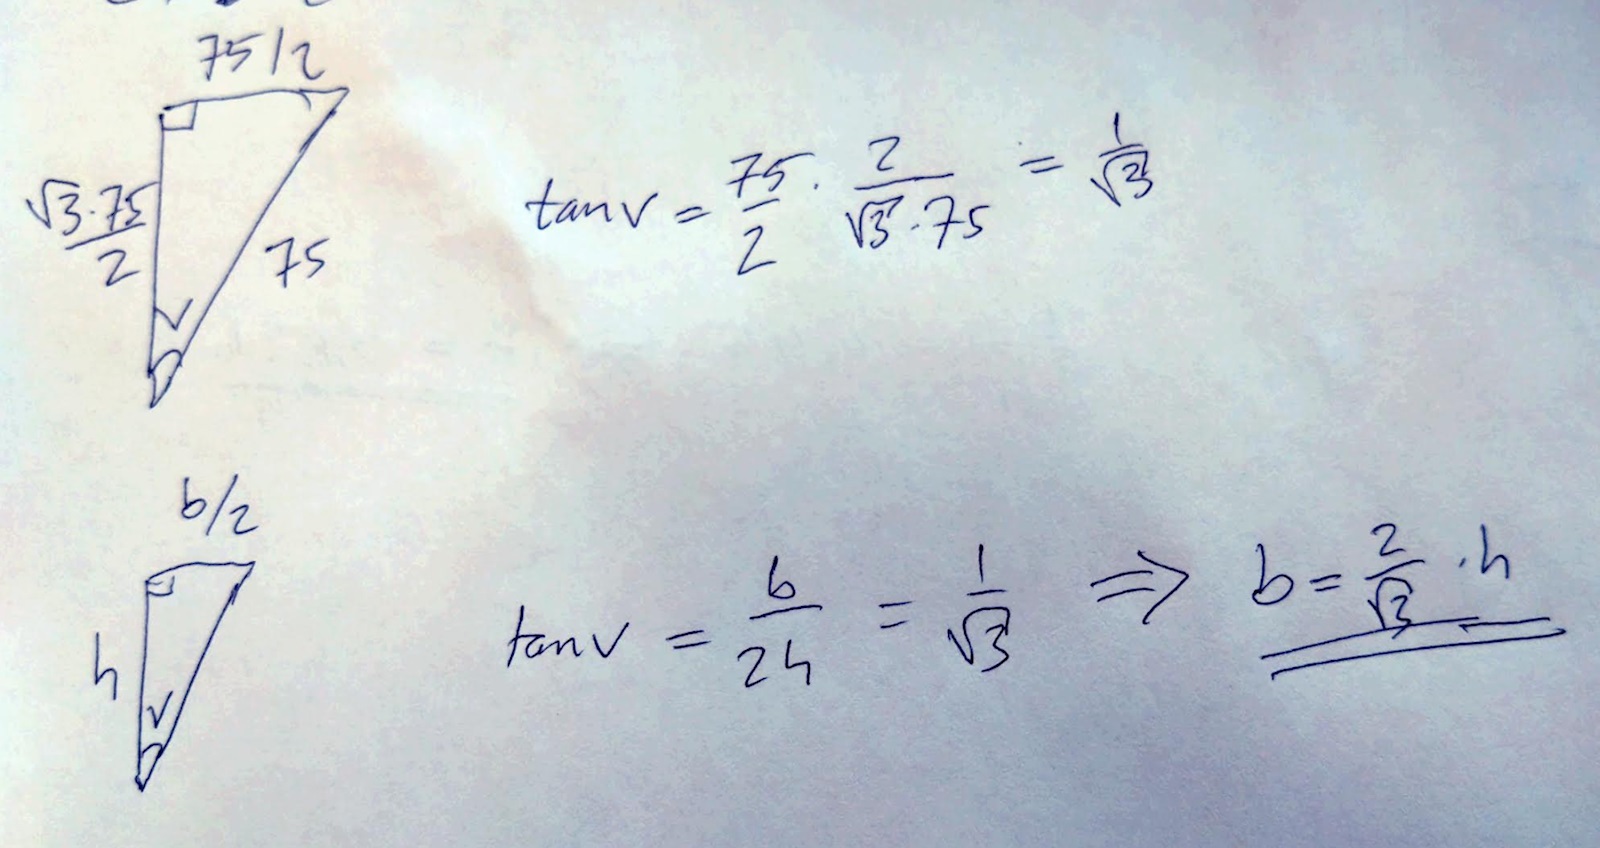 75/2
√3·75/2
75
v
tan v = 75/2 · 2/(√3·75) = 1/√3
b/2
h
v
tan v = b/2h = 1/√3 ⇒ b = 2/√3 · h